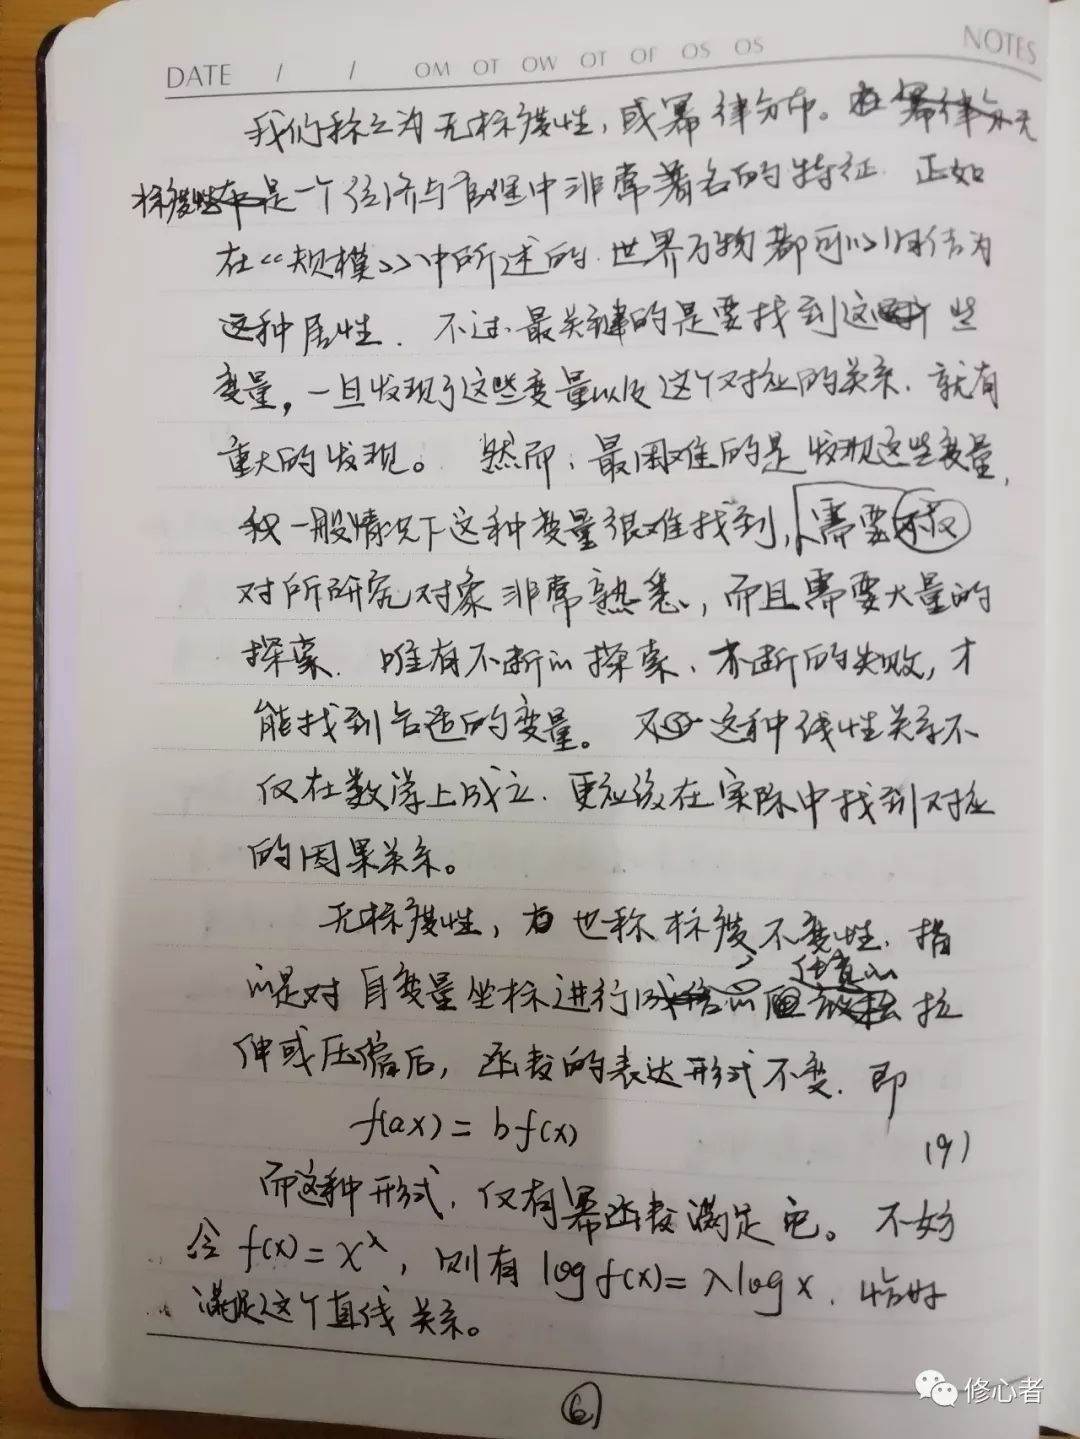 DATE / / OM OT OW OT OF OS OS NOTES
我们称之为无标度性，或幂律分布。在幂律分无
标度性布是一个经济与管理中非常著名的特征. 正如
在《规模》中所述的. 世界万物都可以归结为
这种属性. 不过最关键的是要找到这些
变量，一旦发现了这些变量以及这个对应的关系. 就有
重大的发现。然而，最困难的是发现这些变量,
我一般情况下这种变量很难找到，需要
对所研究对象非常熟悉，而且需要大量的
探索. 唯有不断的探索、不断的失败，才
能找到合适的变量。这种线性关系不
仅在数学上成立. 更应该在实际中找到对应
的因果关系。
无标度性，也称标度不变性. 指
任意的
的是对自变量坐标进行拉
伸或压缩后，函数的表达形式不变. 即
f(ax) = bf(x) (9)
而这种形式，仅有幂函数满足它。不妨
令 f(x) = x^λ, 则有 log f(x) = λ log x. 恰好
满足这个直线关系。
6
修心者